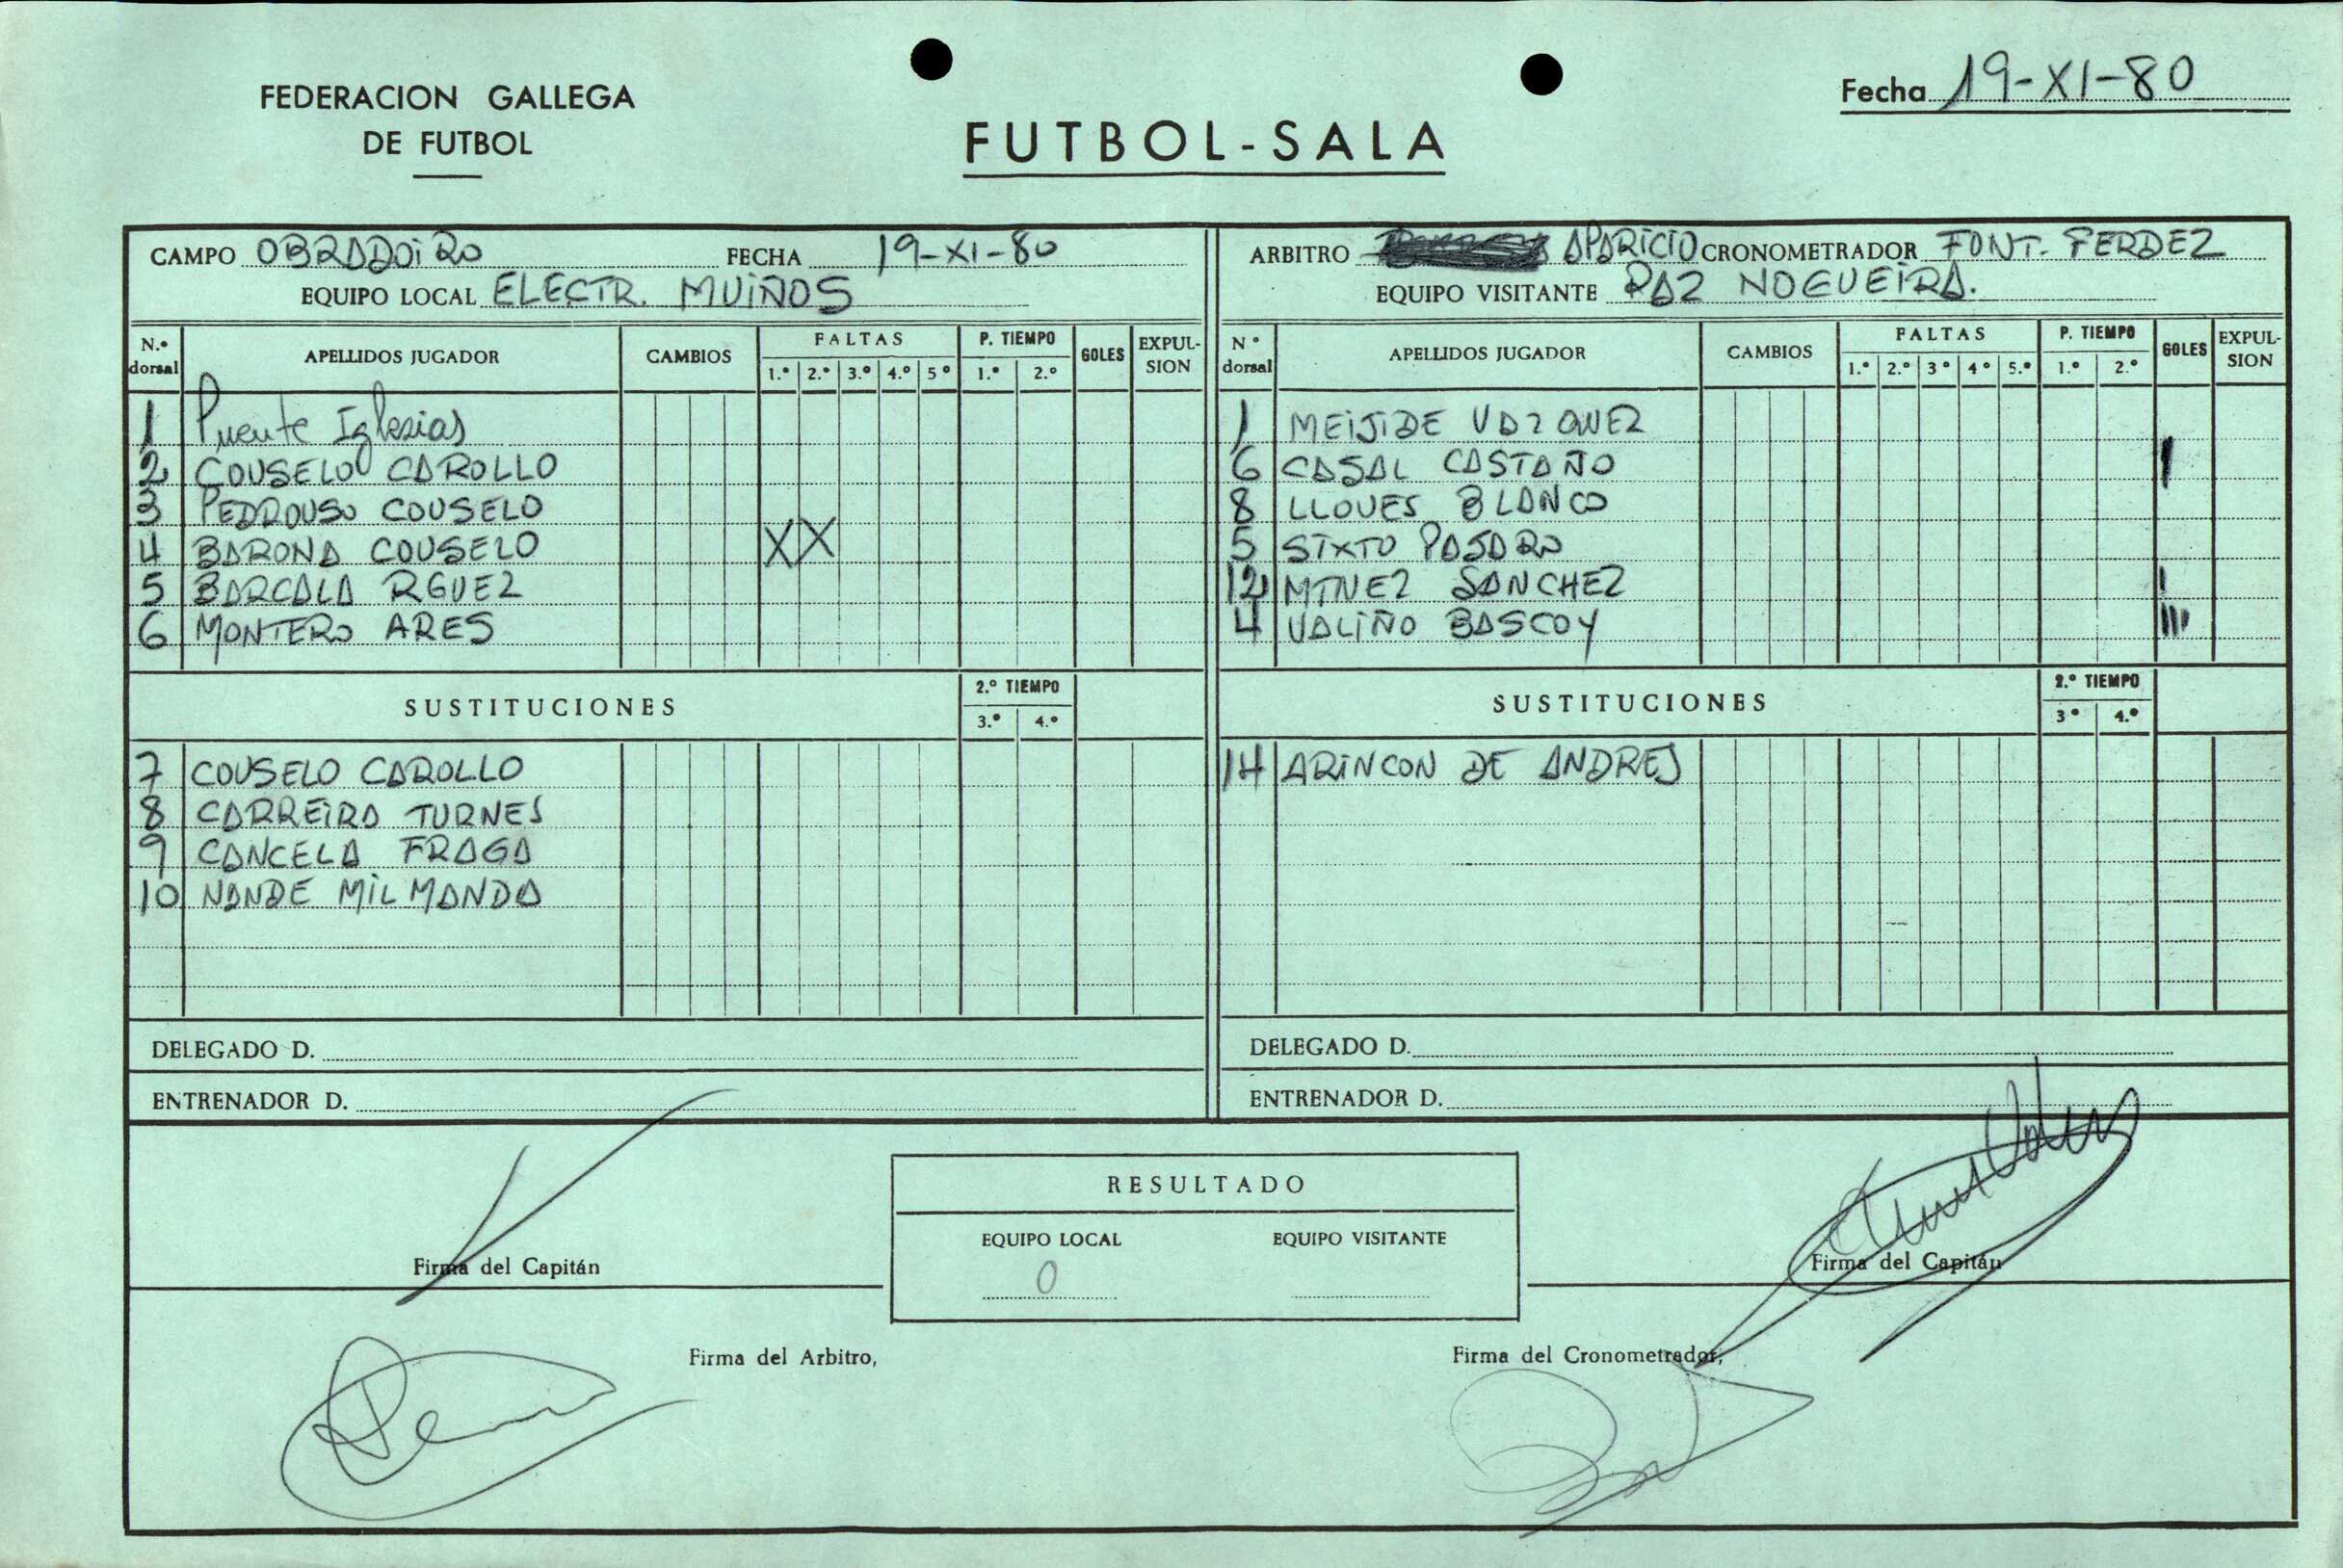 FEDERACION GALLEGA
DE FUTBOL
FUTBOL-SALA
Fecha 19-XI-80
CAMPO OBRADOIRO FECHA 19-XI-80
EQUIPO LOCAL ELECTR. MUIÑOS
N.º dorsal APELLIDOS JUGADOR CAMBIOS FALTAS 1.º 2.º 3.º 4.º 5º P. TIEMPO 1.º 2.º GOLES EXPULSION
1 Puente Iglesias
2 COUSELO CAROLLO
3 PEDROUSO COUSELO
4 BARONA COUSELO XX
5 BARCALA RGUEZ
6 MONTERO ARES
SUSTITUCIONES 2.º TIEMPO 3.º 4.º
7 COUSELO CAROLLO
8 CARREIRA TURNES
9 CANCELA FRAGA
10 NANDE MILMANDA
DELEGADO D.
ENTRENADOR D.
ARBITRO APARICIO CRONOMETRADOR FONT. FERDEZ
EQUIPO VISITANTE PAZ NOGUEIRA.
Nº dorsal APELLIDOS JUGADOR CAMBIOS FALTAS 1.º 2.º 3º 4º 5.º P. TIEMPO 1.º 2.º GOLES EXPULSION
1 MEIJIDE VAZQUEZ
6 CASAL CASTAÑO I
8 LLOVES BLANCO
5 SIXTO PAJARO
12 MTNEZ SANCHEZ I
4 VALIÑO BASCOY III
SUSTITUCIONES 2.º TIEMPO 3º 4.º
14 ARINCON DE ANDRES
DELEGADO D.
ENTRENADOR D.
RESULTADO
EQUIPO LOCAL EQUIPO VISITANTE
0
Firma del Capitán
Firma del Capitán
Firma del Arbitro,
Firma del Cronometrador,